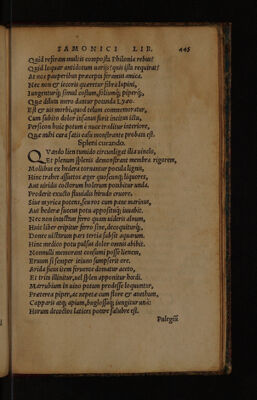 SAMONICI LIB. 445
Quid referam multis composta Philonia rebus?
Quid loquar antidotum uarijs? quis ista requirat?
At nos pauperibus præcepta feramus amica.
Nec non & iecoris quæretur fibra lupini,
Iungenturq́; simul costum, foliumq́;, piperq́;,
Quæ dilum mero dantur potanda Lyæo.
Est & uis morbi, quod telum commemoratur,
Cum subito dolor infanus furit incitus ictu,
Persicon huic potum è nuce traditur interiore,
Quæ nubi cæca satis casu monstrante probata est.
Spleni curando.
Quando lien tumido circundigat ilia uinclo,
Et plenum splenis demonstrant membra rigorem,
Mollibus ex hedera tornantur pocula lignis,
Hinc trahet assuetos æger quoscunq; liquores,
Aut uiridis coctorum holerum potabitur unda.
Proderit exucto fluuialis hirudo cruore.
Siue myrica potens, seu ros cum pane marinus,
Aut hederæ succus potu appositusq; iuuabit.
Nec non inuictus ferro quam uideris alnum,
Huic liber eripitur ferro sine, decoquiturq́;,
Donec uicturum pars tertia subsit aquarum.
Hinc medico potu pulsus dolor omnis abibit.
Nonnulli memorant consumi posse lienem,
Eruum si semper ieiuno sumpserit ore.
Arida sicus item feruente domatur aceto,
Et trita illinitur, uel splen apponitur hœdi.
Marrubium in uino potum prodesse loquuntur,
Præterea piper, ac nepetæ cum flore & anethum,
Capparis atq; apium, buglossaq; iungitur una:
Horum decoctos latices potare salubre est.
Pulegiũ